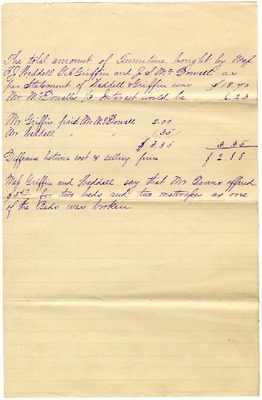 The total amount of Furniture bought by Mess
Weddell & Griffin and J. S. McDowell as
per Statement of Weddell & Griffin was $18.70
Mr. McDowells 1/3 Interest would be 6.23
Mr Griffin paid Mr. McDowell 3.00
Mr Weddell " " .35
$3.35 3.35
Difference between cost & selling price $2.88
Mess Griffin and Weddell say that Mr Evans offered
for two beds and two mattrages as one
of the Beds was broken